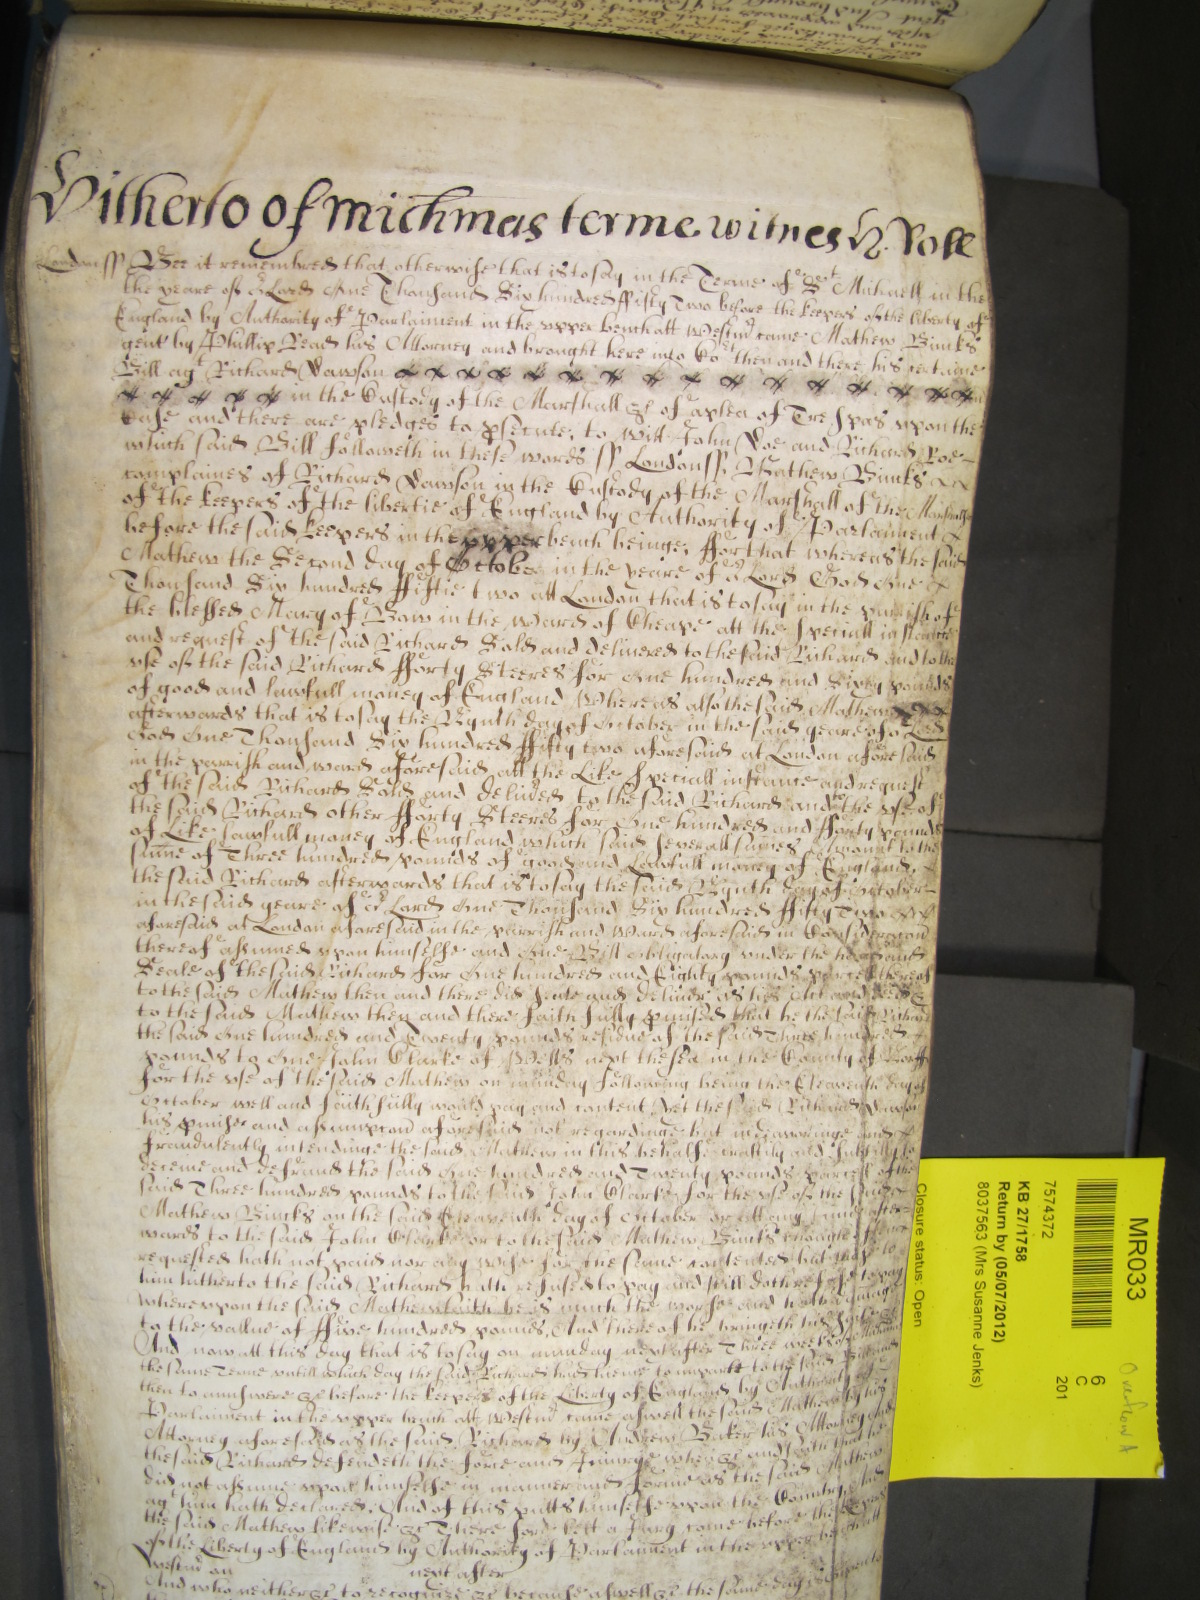 Hitherto of Michmas terme witnes H. Rolle
Londonss Bee it remembred that otherwise that is to say in the Terme of St Michaell in the
the yeare of or Lord One Thousand Six hundred ffifty Two before the keepers of the liberty of
England by Authority of Parlaiment in the upper bench att Westmr came Mathew Binks
gent by Phillip Read his Attorney and brought here into Cort then and there his certaine
Bill agt Richard Dawson
in the Custody of the Marshall &c of a plea of Trespas upon the
Case and there are pledges to psecute, to witt John Doe and Richard Roe
which said Bill followeth in these words ss Londonss Mathew Binks
complaines of Richard Dawson in the Custody of the Marshall of the Marshalsea
of the keepers of the libertie of England by Authority of Parlament
before the said keepers in the upper bench beinge, ffor that whereas the said
Mathew the Second day of October in the yeare of or Lord God One
Thousand Six hundred ffiftie two att London that is to say in the parish of
the blessed Mary of Bow in the ward of Cheape att the speciall instance
and request of the said Richard Sold and delivered to the said Richard and to the
use of the said Richard fforty Steeres for One hundred and Sixty pounds
of good and lawfull money of England Whereas also the said Mathew
afterwards that is to say the Nynth day of October in the said yeare of or Lord
God One Thousand Six hundred ffifty two aforesaid at London aforesaid
in the parrish and ward aforesaid att the Like speciall instance and request
of the said Richard Sold and delivred to the said Richard and to the use of
the said Richard other fforty Steeres for One hundred and fforty pounds
of Like lawfull money of England which said severall sumes Amount to the
sume of Three hundred pounds of good and Lawfull money of England,
the said Richard afterwards that is to say the said Nynth day of October
in the said yeare of or Lord One Thousand Six hundred ffifty Two
aforesaid at London aforesaid in the parrish and Ward aforesaid in Consideracon
thereof assumed upon himselfe and One Bill obligatory under the hand and
Seale of the said Richard for One hundred and Eighty pounds parcell thereof
to the said Mathew then and there did seale and deliver as his Act and deed
to the said Mathew then and there faithfully pmised that he the said Richard
the said One hundred and Twenty pounds residue of the said Three hundred
pounds to One John Clarke of Wells next the sea in the County of Norff
for the use of the said Mathew on munday following being the Eleaventh day of
October well and faithfully would pay and content, Yet the said Richard Dawson
his pmise and assumpcon aforesaid not regardinge but
fraudulently intendinge the said Mathew in this behalfe craftily and subtilly to
deceive and defraud the said One hundred and Twenty pounds parcell of the
said Three hundred pounds to the said John Clarke for the use of the said
Mathew Bincks on the said Eleaventh day of October or att any time after
wards to the said John Clarke or to the said Mathew Binks though
requested hath not paid nor any wise for the same contented but the same to
him hitherto the said Richard hath refused to pay and still doth refuse to pay
whereupon the said Mathew saith he is much the worse and hath damage
to the vallue of ffive hundred pounds, And thereof he bringeth his suite &c
And now att this day that is to say on munday next after Three weekes of
the same Terme untill which day the said Richard had licence to imparle to the said Bill and
then to answere &c before the keepers of the Liberty of England by Authority of
Parlaiment in the upper bench att Westmr came aswell the said Mathew by his
Attorney aforesaid as the said Richard by Andrew Baker his Attorney And
the said Richard defendeth the force and Iniury when &c and saith that he
did not assume upon himselfe in manner and forme as the said Mathew
agt him hath declared, And of this putts himselfe upon the Country, And
the said Mathew likewise &c Therefore lett a Jury come before the keepers
of the Liberty of England by Authority of Parlaiment in the upper bench att
Westmr on next after
And who neither &c to recognize &c because aswell &c the same day is
MR033
6
C
201
7574372
KB 27/1758
Return by (05/07/2012)
8037563 (Mrs Susanne Jenks)
Closure status: Open